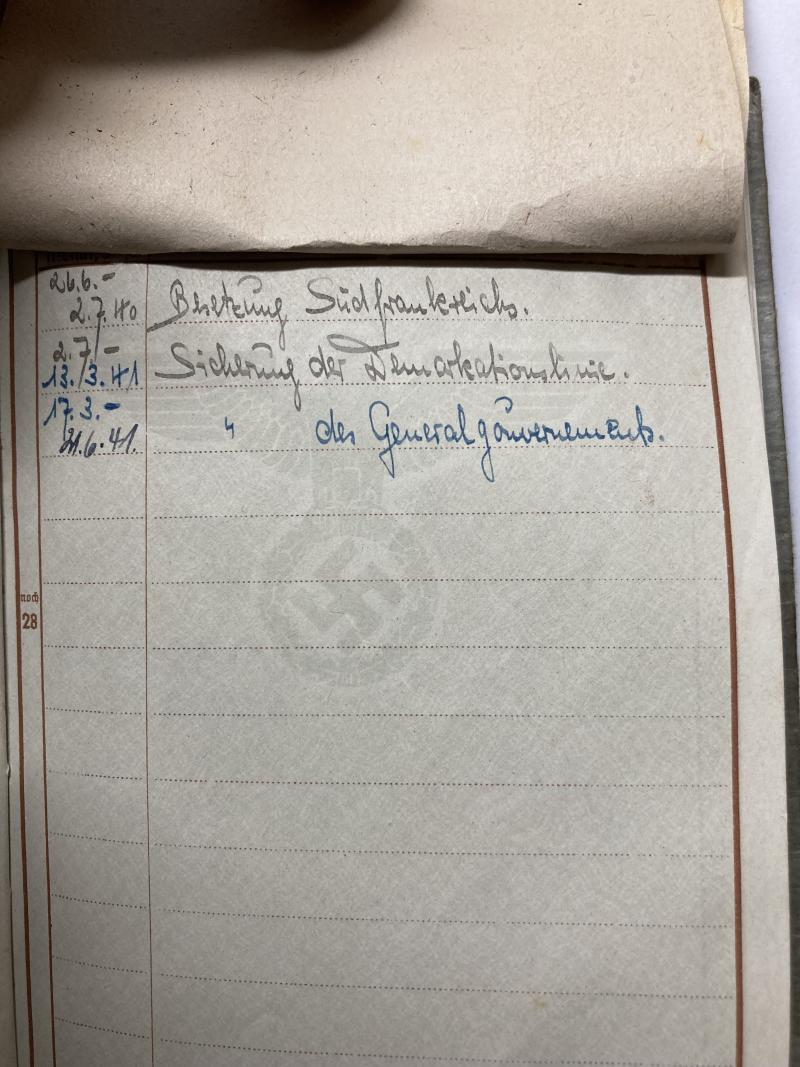 26.6.-
2.7.40 Besetzung Südfrankreichs.
2.7.-
13.3.41 Sicherung der Demarkationslinie.
17.3.-
21.6.41. " des Generalgouvernements.
noch
28